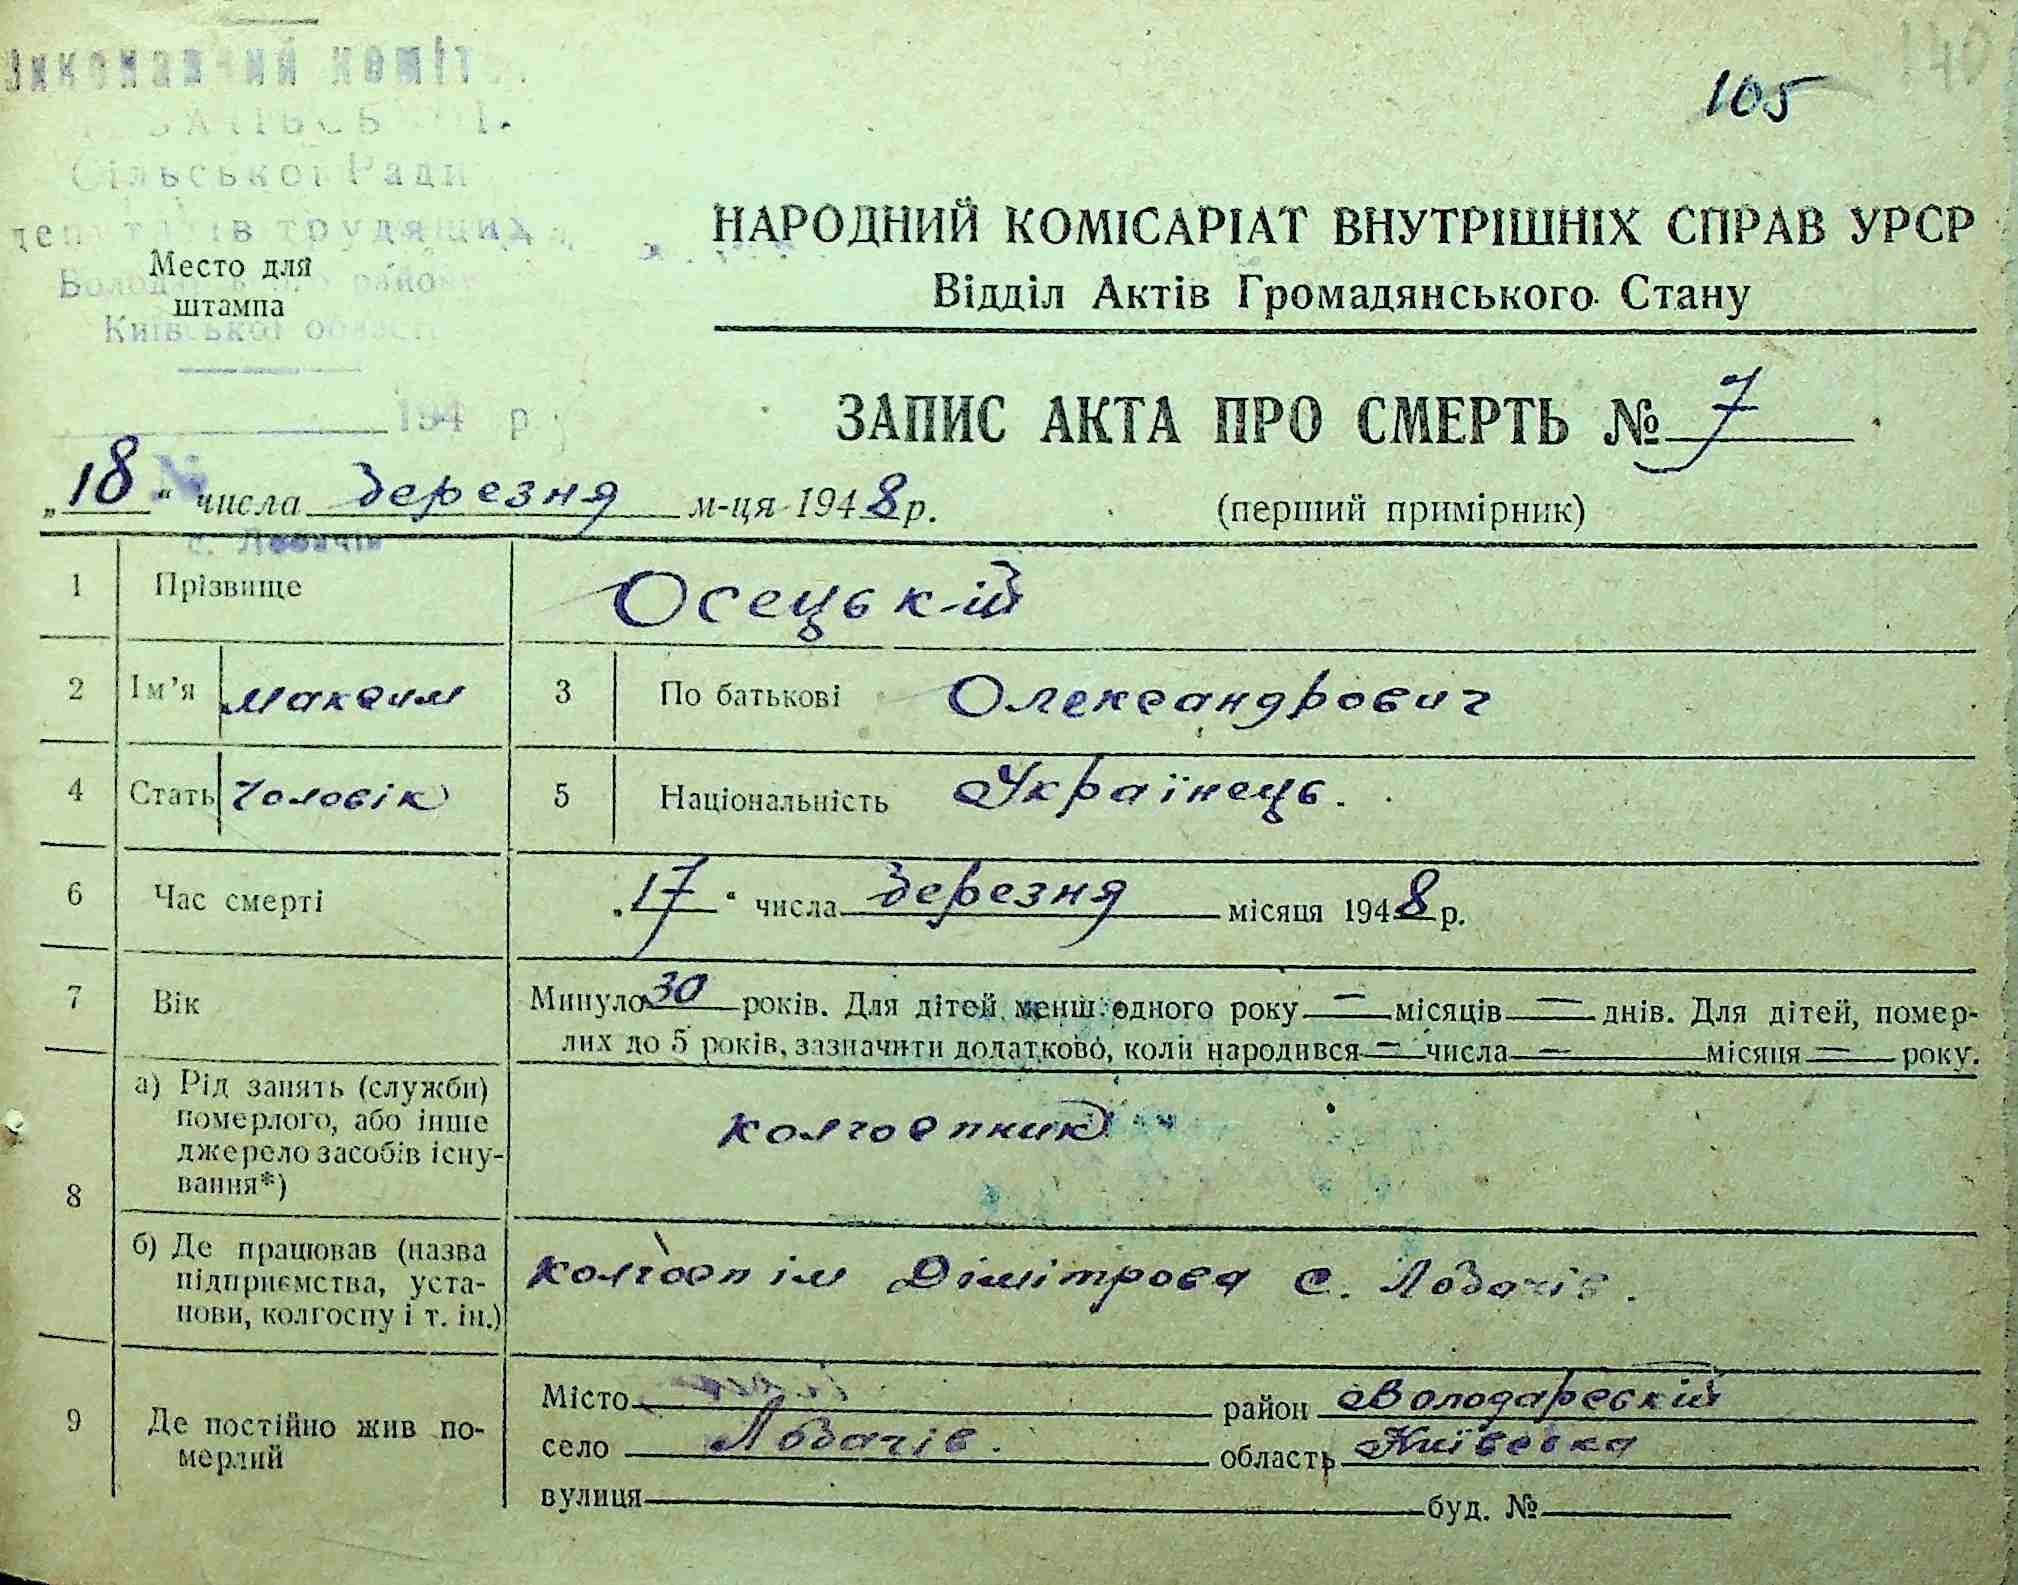 Виконавчий коміт
Сільської Ради
депутатів трудящих
Володарського району
Київської області
Место для
штампа
194 р.
№
с. Лобачів
105
НАРОДНИЙ КОМІСАРІАТ ВНУТРІШНІХ СПРАВ УРСР
Відділ Актів Громадянського Стану
ЗАПИС АКТА ПРО СМЕРТЬ № 7
„18“ числа березня м-ця 1948 р.
(перший примірник)
1 Прізвище Осецьк-ій
2 Ім’я Максим 3 По батькові Олександрович
4 Стать Чоловік 5 Національність Українець.
6 Час смерті „17“ числа березня місяця 1948 р.
7 Вік Минуло 30 років. Для дітей менш одного року — місяців — днів. Для дітей, помер-
лих до 5 років, зазначити додатково, коли народився — числа — місяця — року.
8 а) Рід занять (служби)
померлого, або інше
джерело засобів існу-
вання*)
колгоспник
б) Де працював (назва
підприємства, уста-
нови, колгоспу і т. ін.)
колгосп ім Дімітрова с. Лобачів.
9 Де постійно жив по-
мерлий
Місто район Володарській
село Лобачів. область Київська
вулиця буд. №